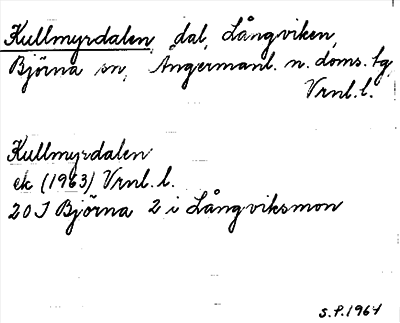 Kullmyrdalen, dal, Långviken,
Björna sn, Ångermanl. n. doms. tg,
Vrnl. l.
Kullmyrdalen
ek (1963) Vrnl. l.
20 J Björna 2 i Långviksmon
S.P. 1967